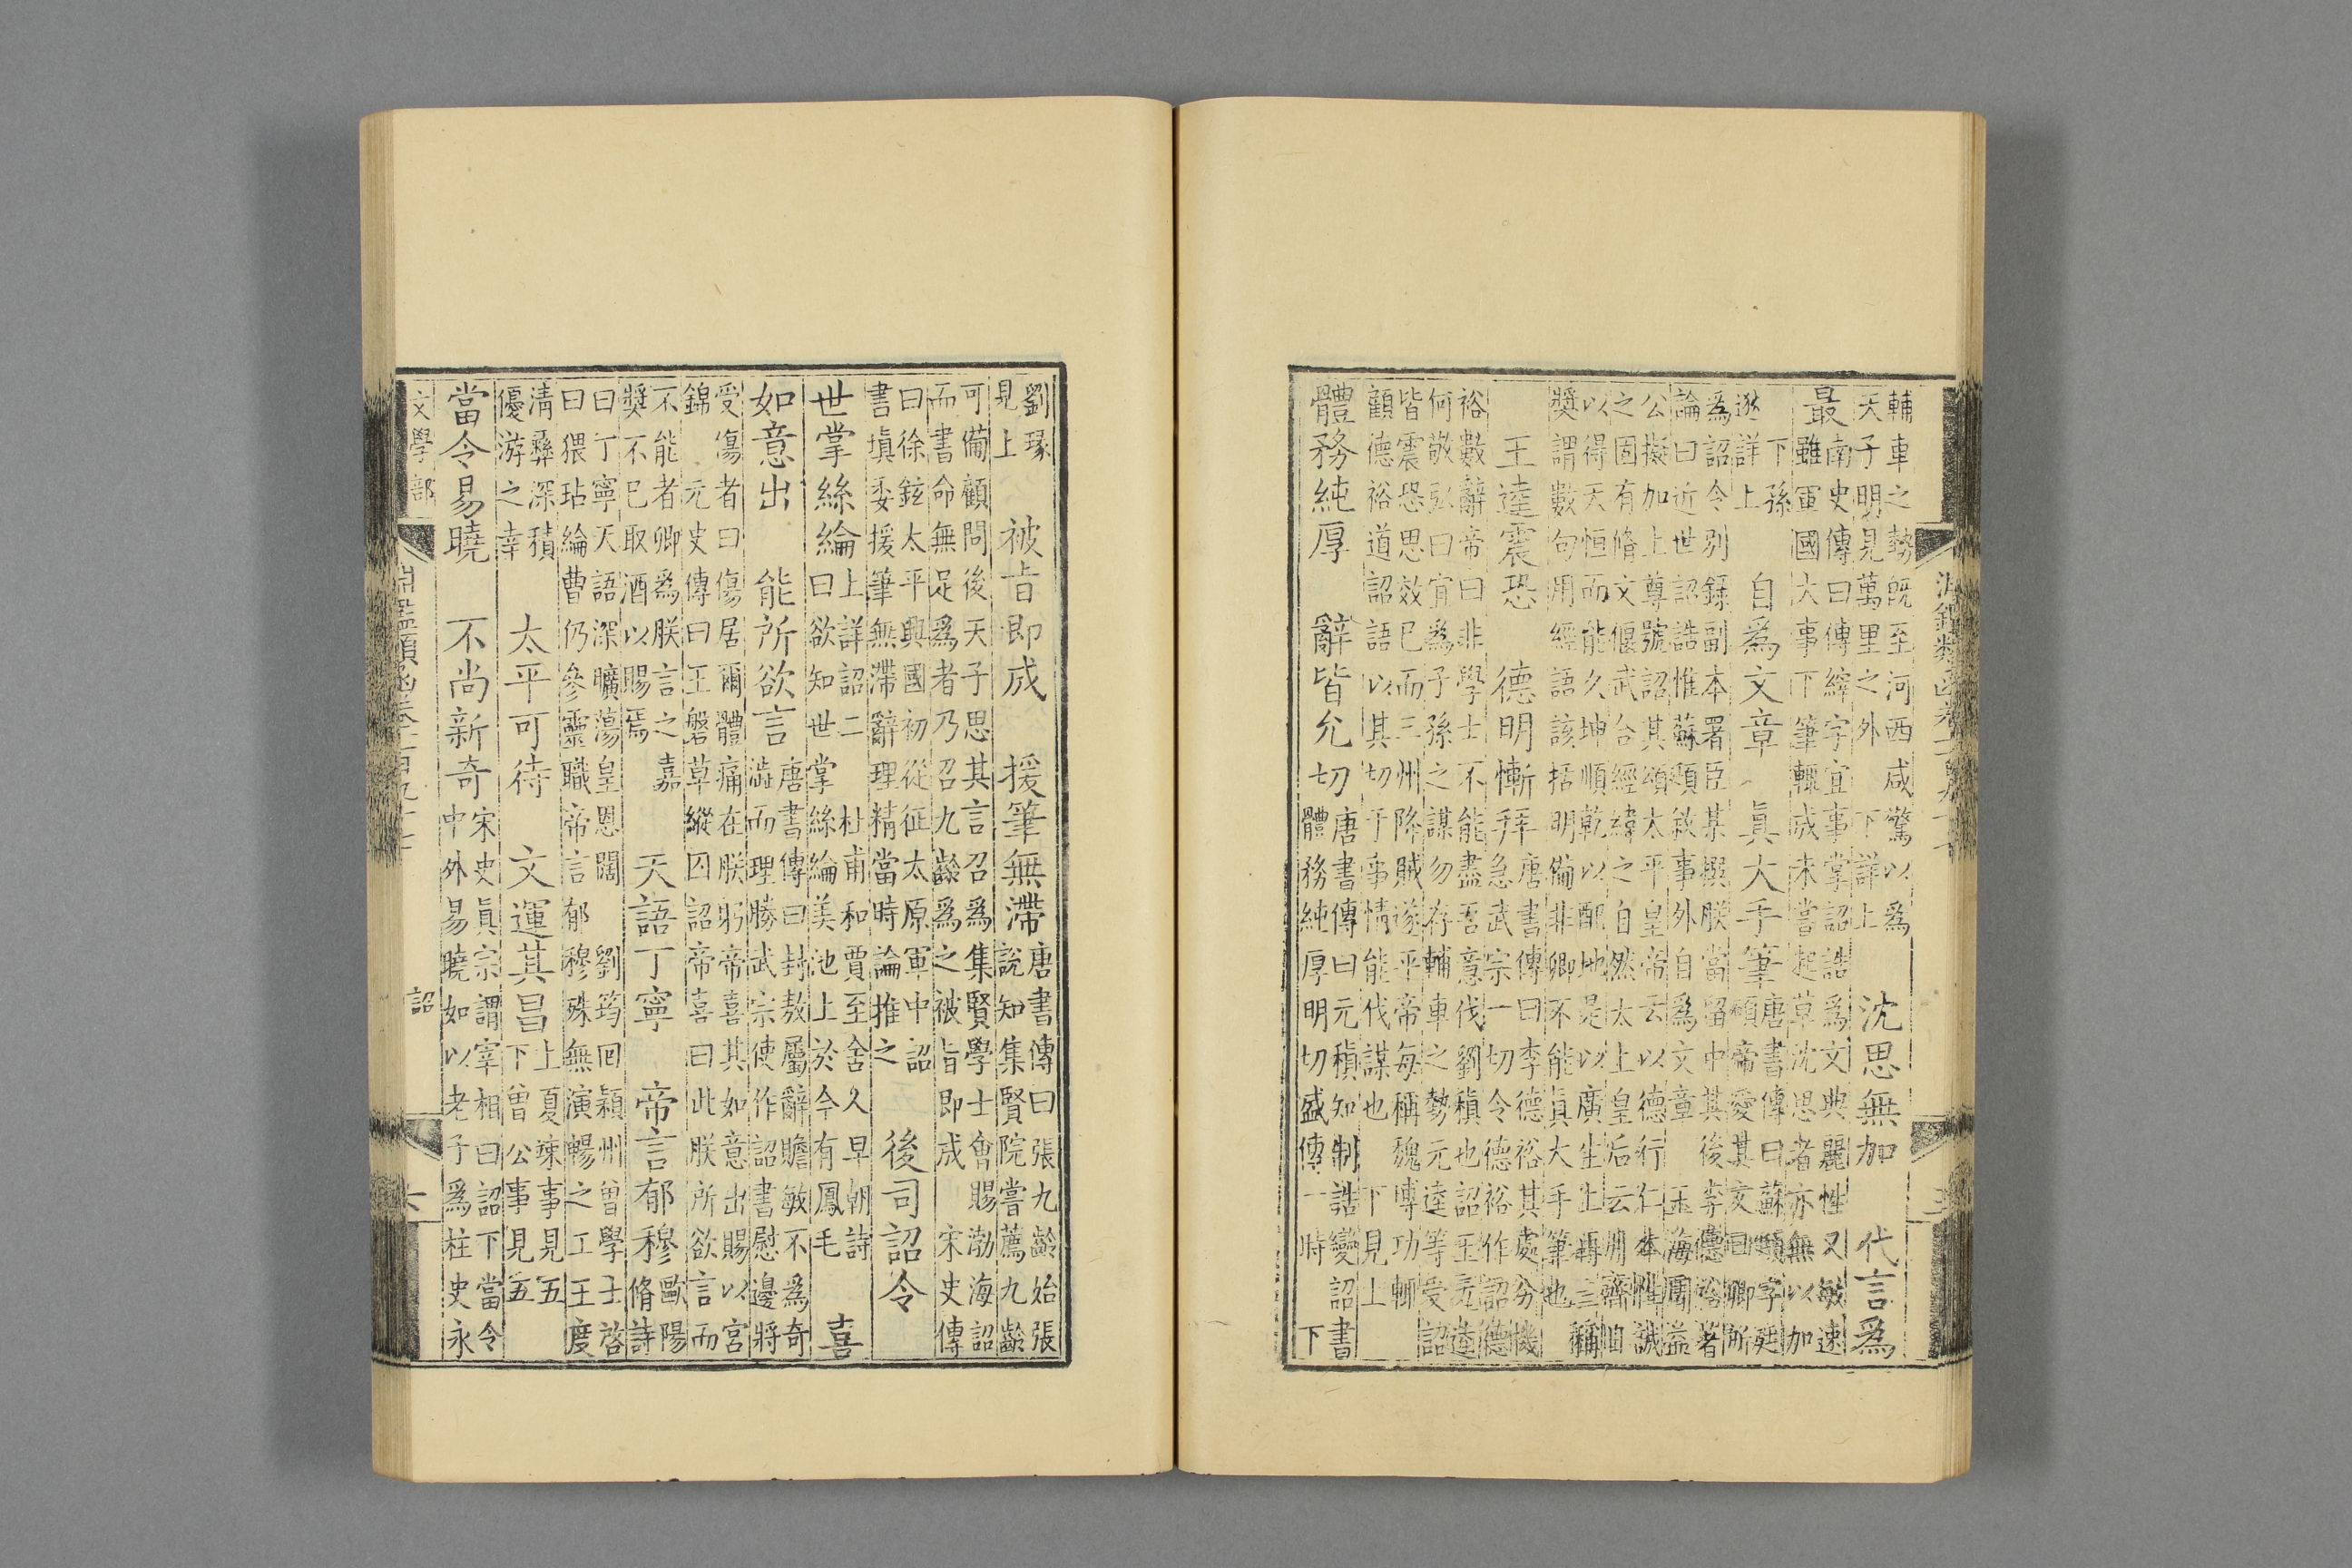 輔車之勢旣至河西咸驚以爲
天子明見萬里之外　下詳上
沈思無加　代言爲
最
南史傳曰傅縡字宜事掌詔誥爲文典麗性又敏速
雖軍國大事下筆輒成未嘗起草沈思者亦無以加
下孫
逖詳上
自爲文章　眞大手筆
唐書傳曰蘇頲字廷
頲帝愛其文曰卿所
爲詔令別錄副本署臣某撰朕當留中其後李德裕著
論曰近世詔誥惟蘇頲敘事外自爲文章　玉海周益
公擬加上尊號詔其頌太平皇帝云以德行仁本性誠
之固有脩文偃武合經緯之自然太上皇后云用齊自
以得天恒而能久坤順乾以配地是以廣生上再三稱
獎謂數句用經語該括明備非卿不能眞大手筆也
王逵震恐　德明慚拜
唐書傳曰李德裕其處分機
急武宗一切令德裕作詔德
裕數辭帝曰非學士不能盡吾意伐劉稹也詔王元逵
何敬弘曰宜爲子孫之謀勿存輔車之勢元逵等受詔
皆震恐思效已而三州降賊遂平帝每稱魏博功輒
顧德裕道詔語以其切于事情能伐謀也　下見上
體務純厚　辭皆允切
唐書傳曰元稹知制誥變詔書
體務純厚明切盛傳一時　下
劉瑑
見上
被旨即成　援筆無滯
唐書傳曰張九齡始張
說知集賢院嘗薦九齡
可備顧問後天子思其言召爲集賢學士會賜渤海詔
而書命無足爲者乃召九齡爲之被旨即成　宋史傳
曰徐鉉太平興國初從征太原軍中詔
書塡委援筆無滯辭理精當時論推之
後司詔令
世掌絲綸
上詳詔二　杜甫和賈至舍人早朝詩
曰欲知世掌絲綸美池上於今有鳳毛
喜
如意出　能所欲言
唐書傳曰封敖屬辭贍敏不爲奇
澁而理勝武宗使作詔書慰邊將
受傷者曰傷居爾體痛在朕躬帝喜其如意出賜以宮
錦　元史傳曰王磐草縱囚詔帝喜曰此朕所欲言而
不能者卿爲朕言之嘉
獎不已取酒以賜焉
天語丁寧　帝言郁穆
歐陽
脩詩
曰丁寧天語深曠蕩皇恩闊　劉筠囘潁州曾學士啓
曰猥玷綸曹仍參靈職帝言郁穆殊無演暢之工王度
淸彝深積
優游之幸
太平可待　文運其昌
上夏竦事見五
下曾公事見五
當令易曉　不尚新奇
宋史眞宗謂宰相曰詔下當令
中外易曉如以老子爲柱史永
文學部
詔
六